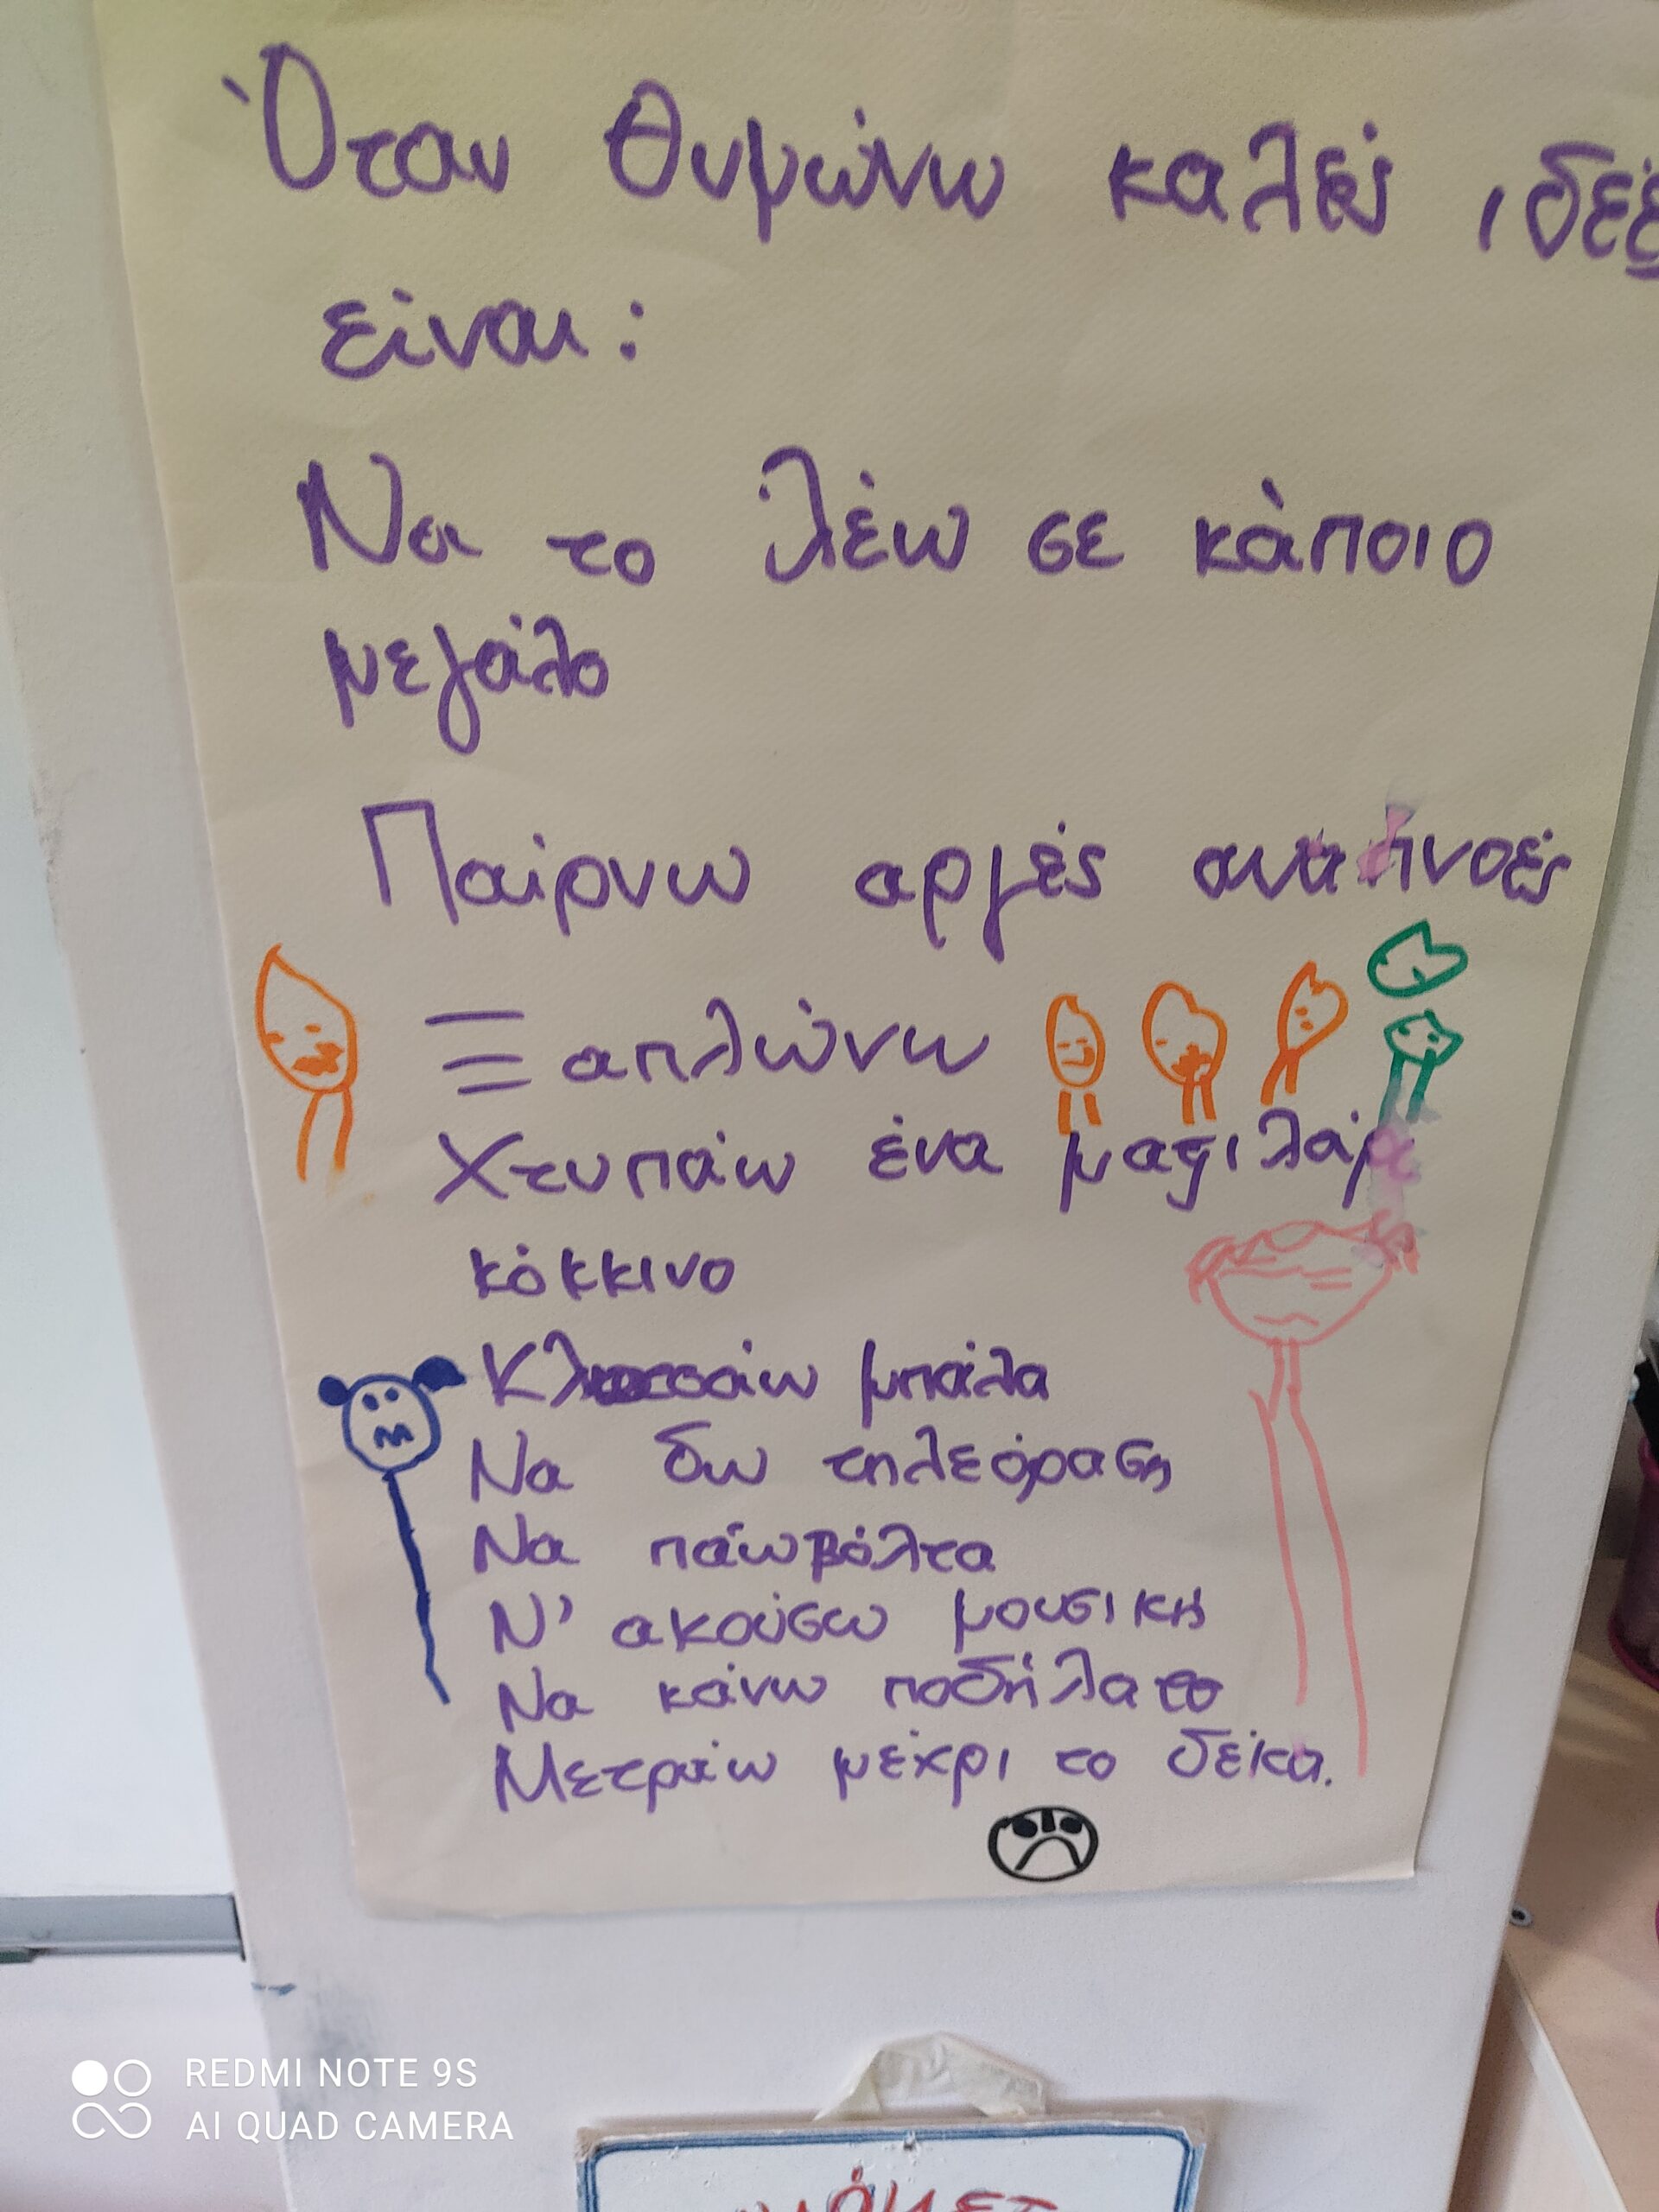 Όταν θυμώνω καλές ιδέες
είναι:
Να το λέω σε κάποιο
μεγάλο
Παίρνω αργές αναπνοές
Ξαπλώνω
Χτυπάω ένα μαξιλάρι
κόκκινο
Κλωτσάω μπάλα
Να δω τηλεόραση
Να πάω βόλτα
Ν' ακούσω μουσική
Να κάνω ποδήλατο
Μετράω μέχρι το δέκα.
REDMI NOTE 9S
AI QUAD CAMERA